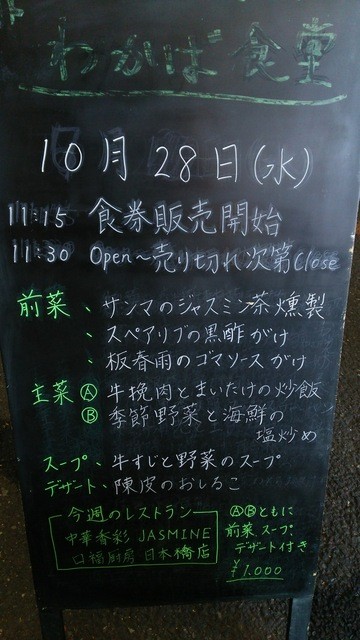 わかば食堂
10月28日(水)
11:15 食券販売開始
11:30 Open～売り切れ次第Close
前菜、サンマのジャスミン茶燻製
、スペアリブの黒酢がけ
、板春雨のゴマソースがけ
主菜Ⓐ牛挽肉とまいたけの炒飯
Ⓑ季節野菜と海鮮の
塩炒め
スープ、牛すじと野菜のスープ
デザート、陳皮のおしるこ
今週のレストラン
中華香彩 JASMINE
口福厨房 日本橋店
ⒶⒷともに
前菜、スープ、
デザート付き
¥1.000